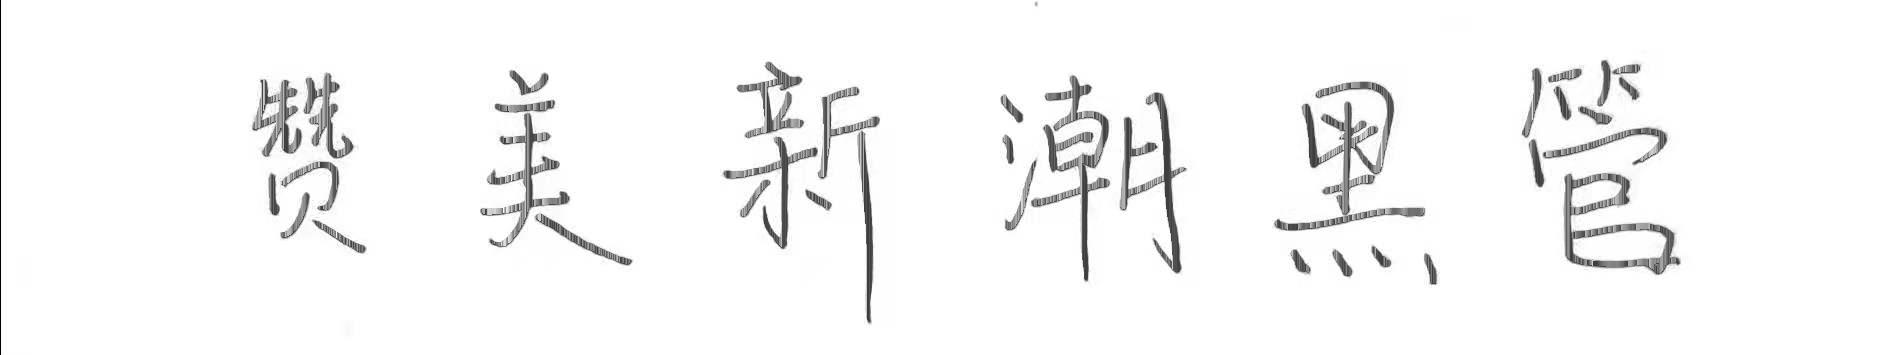 赞美新潮黑管